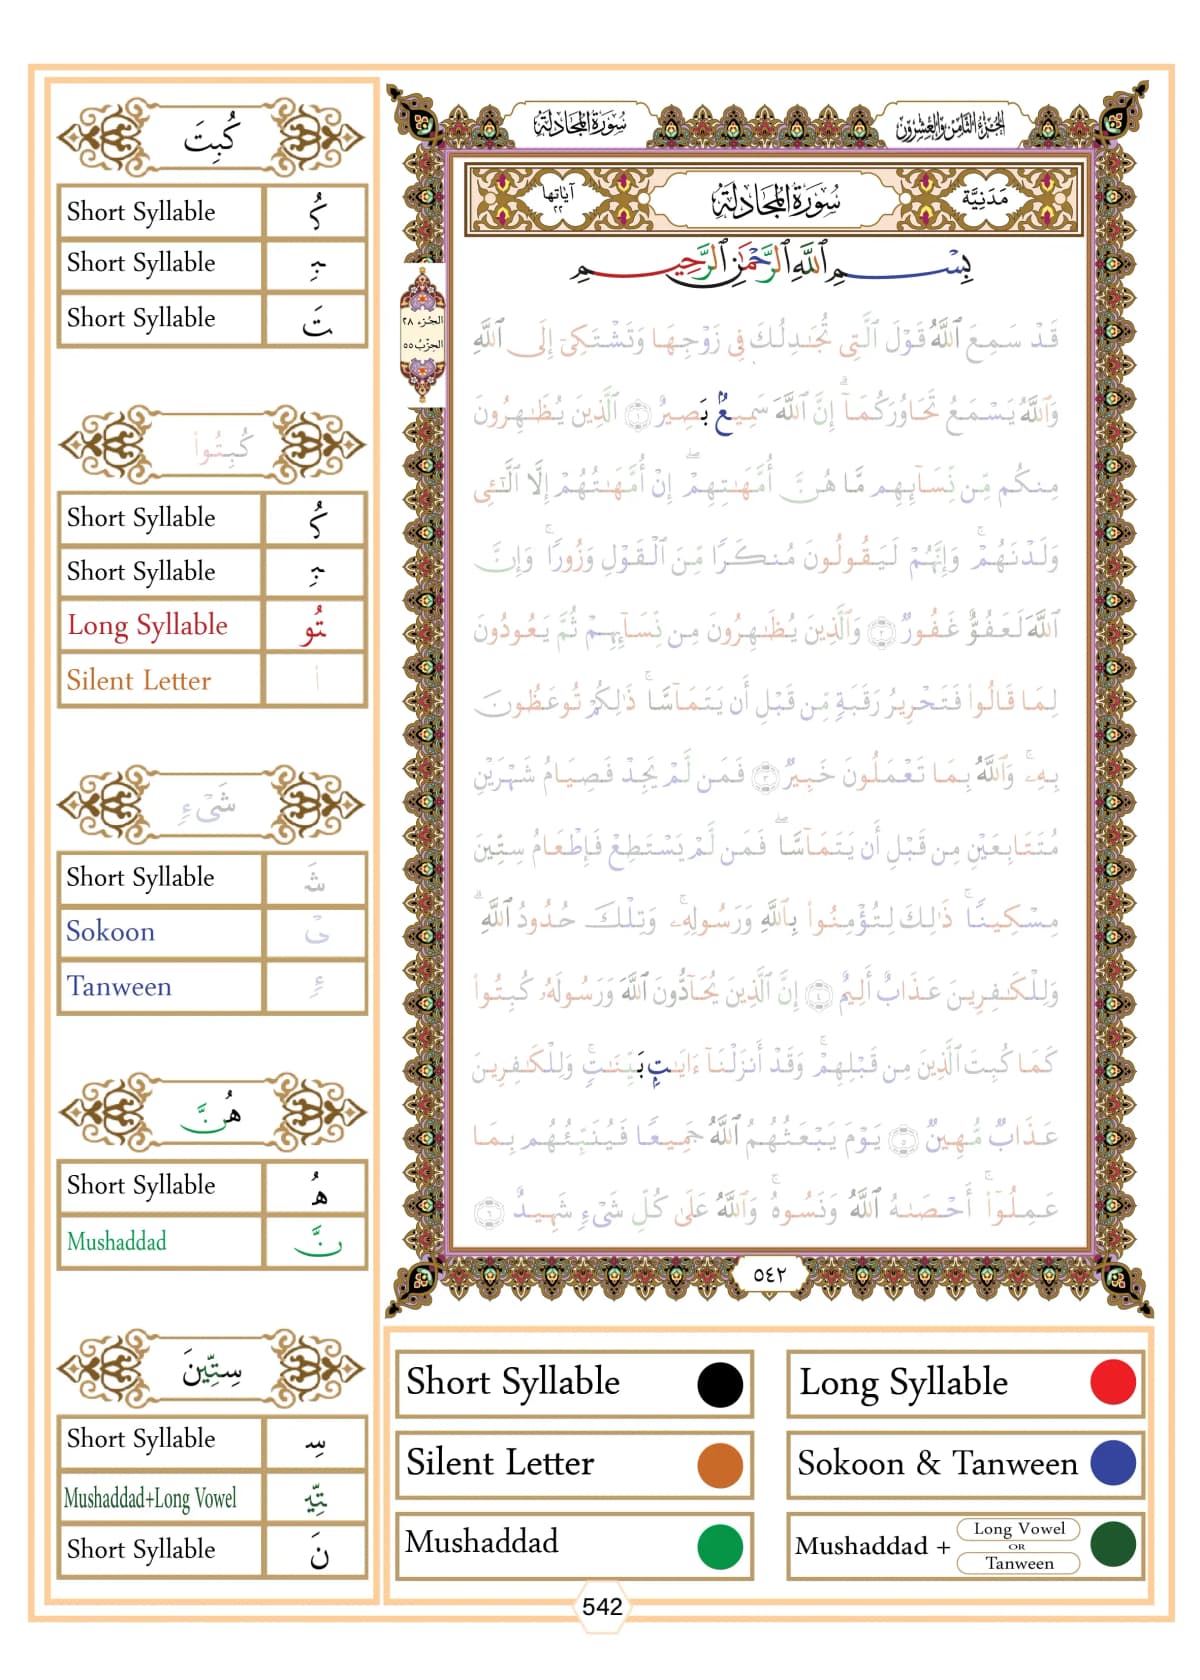 الجزء الثامن والعشرون
سورة المجادلة
مَدَنِيَّة
سُورَةُ المُجَادلَة
آياتها ٢٢
بِسْمِ ٱللَّهِ ٱلرَّحْمَٰنِ ٱلرَّحِيمِ
الجزء ٢٨
الحزب ٥٥
قَدْ سَمِعَ ٱللَّهُ قَوْلَ ٱلَّتِى تُجَٰدِلُكَ فِى زَوْجِهَا وَتَشْتَكِىٓ إِلَى ٱللَّهِ
وَٱللَّهُ يَسْمَعُ تَحَاوُرَكُمَآ ۚ إِنَّ ٱللَّهَ سَمِيعٌۢ بَصِيرٌ ١ ٱلَّذِينَ يُظَٰهِرُونَ
مِنكُم مِّن نِّسَآئِهِم مَّا هُنَّ أُمَّهَٰتِهِمْ ۖ إِنْ أُمَّهَٰتُهُمْ إِلَّا ٱلَّٰٓـِٔى
وَلَدْنَهُمْ ۚ وَإِنَّهُمْ لَيَقُولُونَ مُنكَرًا مِّنَ ٱلْقَوْلِ وَزُورًا ۚ وَإِنَّ
ٱللَّهَ لَعَفُوٌّ غَفُورٌ ٢ وَٱلَّذِينَ يُظَٰهِرُونَ مِن نِّسَآئِهِمْ ثُمَّ يَعُودُونَ
لِمَا قَالُوا۟ فَتَحْرِيرُ رَقَبَةٍ مِّن قَبْلِ أَن يَتَمَآسَّا ۚ ذَٰلِكُمْ تُوعَظُونَ
بِهِۦ ۚ وَٱللَّهُ بِمَا تَعْمَلُونَ خَبِيرٌ ٣ فَمَن لَّمْ يَجِدْ فَصِيَامُ شَهْرَيْنِ
مُتَتَابِعَيْنِ مِن قَبْلِ أَن يَتَمَآسَّا ۖ فَمَن لَّمْ يَسْتَطِعْ فَإِطْعَامُ سِتِّينَ
مِسْكِينًا ۚ ذَٰلِكَ لِتُؤْمِنُوا۟ بِٱللَّهِ وَرَسُولِهِۦ ۚ وَتِلْكَ حُدُودُ ٱللَّهِ ۗ
وَلِلْكَٰفِرِينَ عَذَابٌ أَلِيمٌ ٤ إِنَّ ٱلَّذِينَ يُحَآدُّونَ ٱللَّهَ وَرَسُولَهُۥ كُبِتُوا۟
كَمَا كُبِتَ ٱلَّذِينَ مِن قَبْلِهِمْ ۚ وَقَدْ أَنزَلْنَآ ءَايَٰتٍۭ بَيِّنَٰتٍ ۚ وَلِلْكَٰفِرِينَ
عَذَابٌ مُّهِينٌ ٥ يَوْمَ يَبْعَثُهُمُ ٱللَّهُ جَمِيعًا فَيُنَبِّئُهُم بِمَا
عَمِلُوٓا۟ ۚ أَحْصَىٰهُ ٱللَّهُ وَنَسُوهُ ۚ وَٱللَّهُ عَلَىٰ كُلِّ شَىْءٍ شَهِيدٌ ٦
٥٤٢
كُبِتَ
Short Syllable كُ
Short Syllable بِ
Short Syllable تَ
كُبِتُوا۟
Short Syllable كُ
Short Syllable بِ
Long Syllable تُو
Silent Letter ا۟
شَىْءٍ
Short Syllable شَ
Sokoon ىْ
Tanween ءٍ
هُنَّ
Short Syllable هُ
Mushaddad نَّ
سِتِّينَ
Short Syllable سِ
Mushaddad+Long Vowel تِّي
Short Syllable نَ
Short Syllable
Long Syllable
Silent Letter
Sokoon & Tanween
Mushaddad
Mushaddad + Long Vowel OR Tanween
542